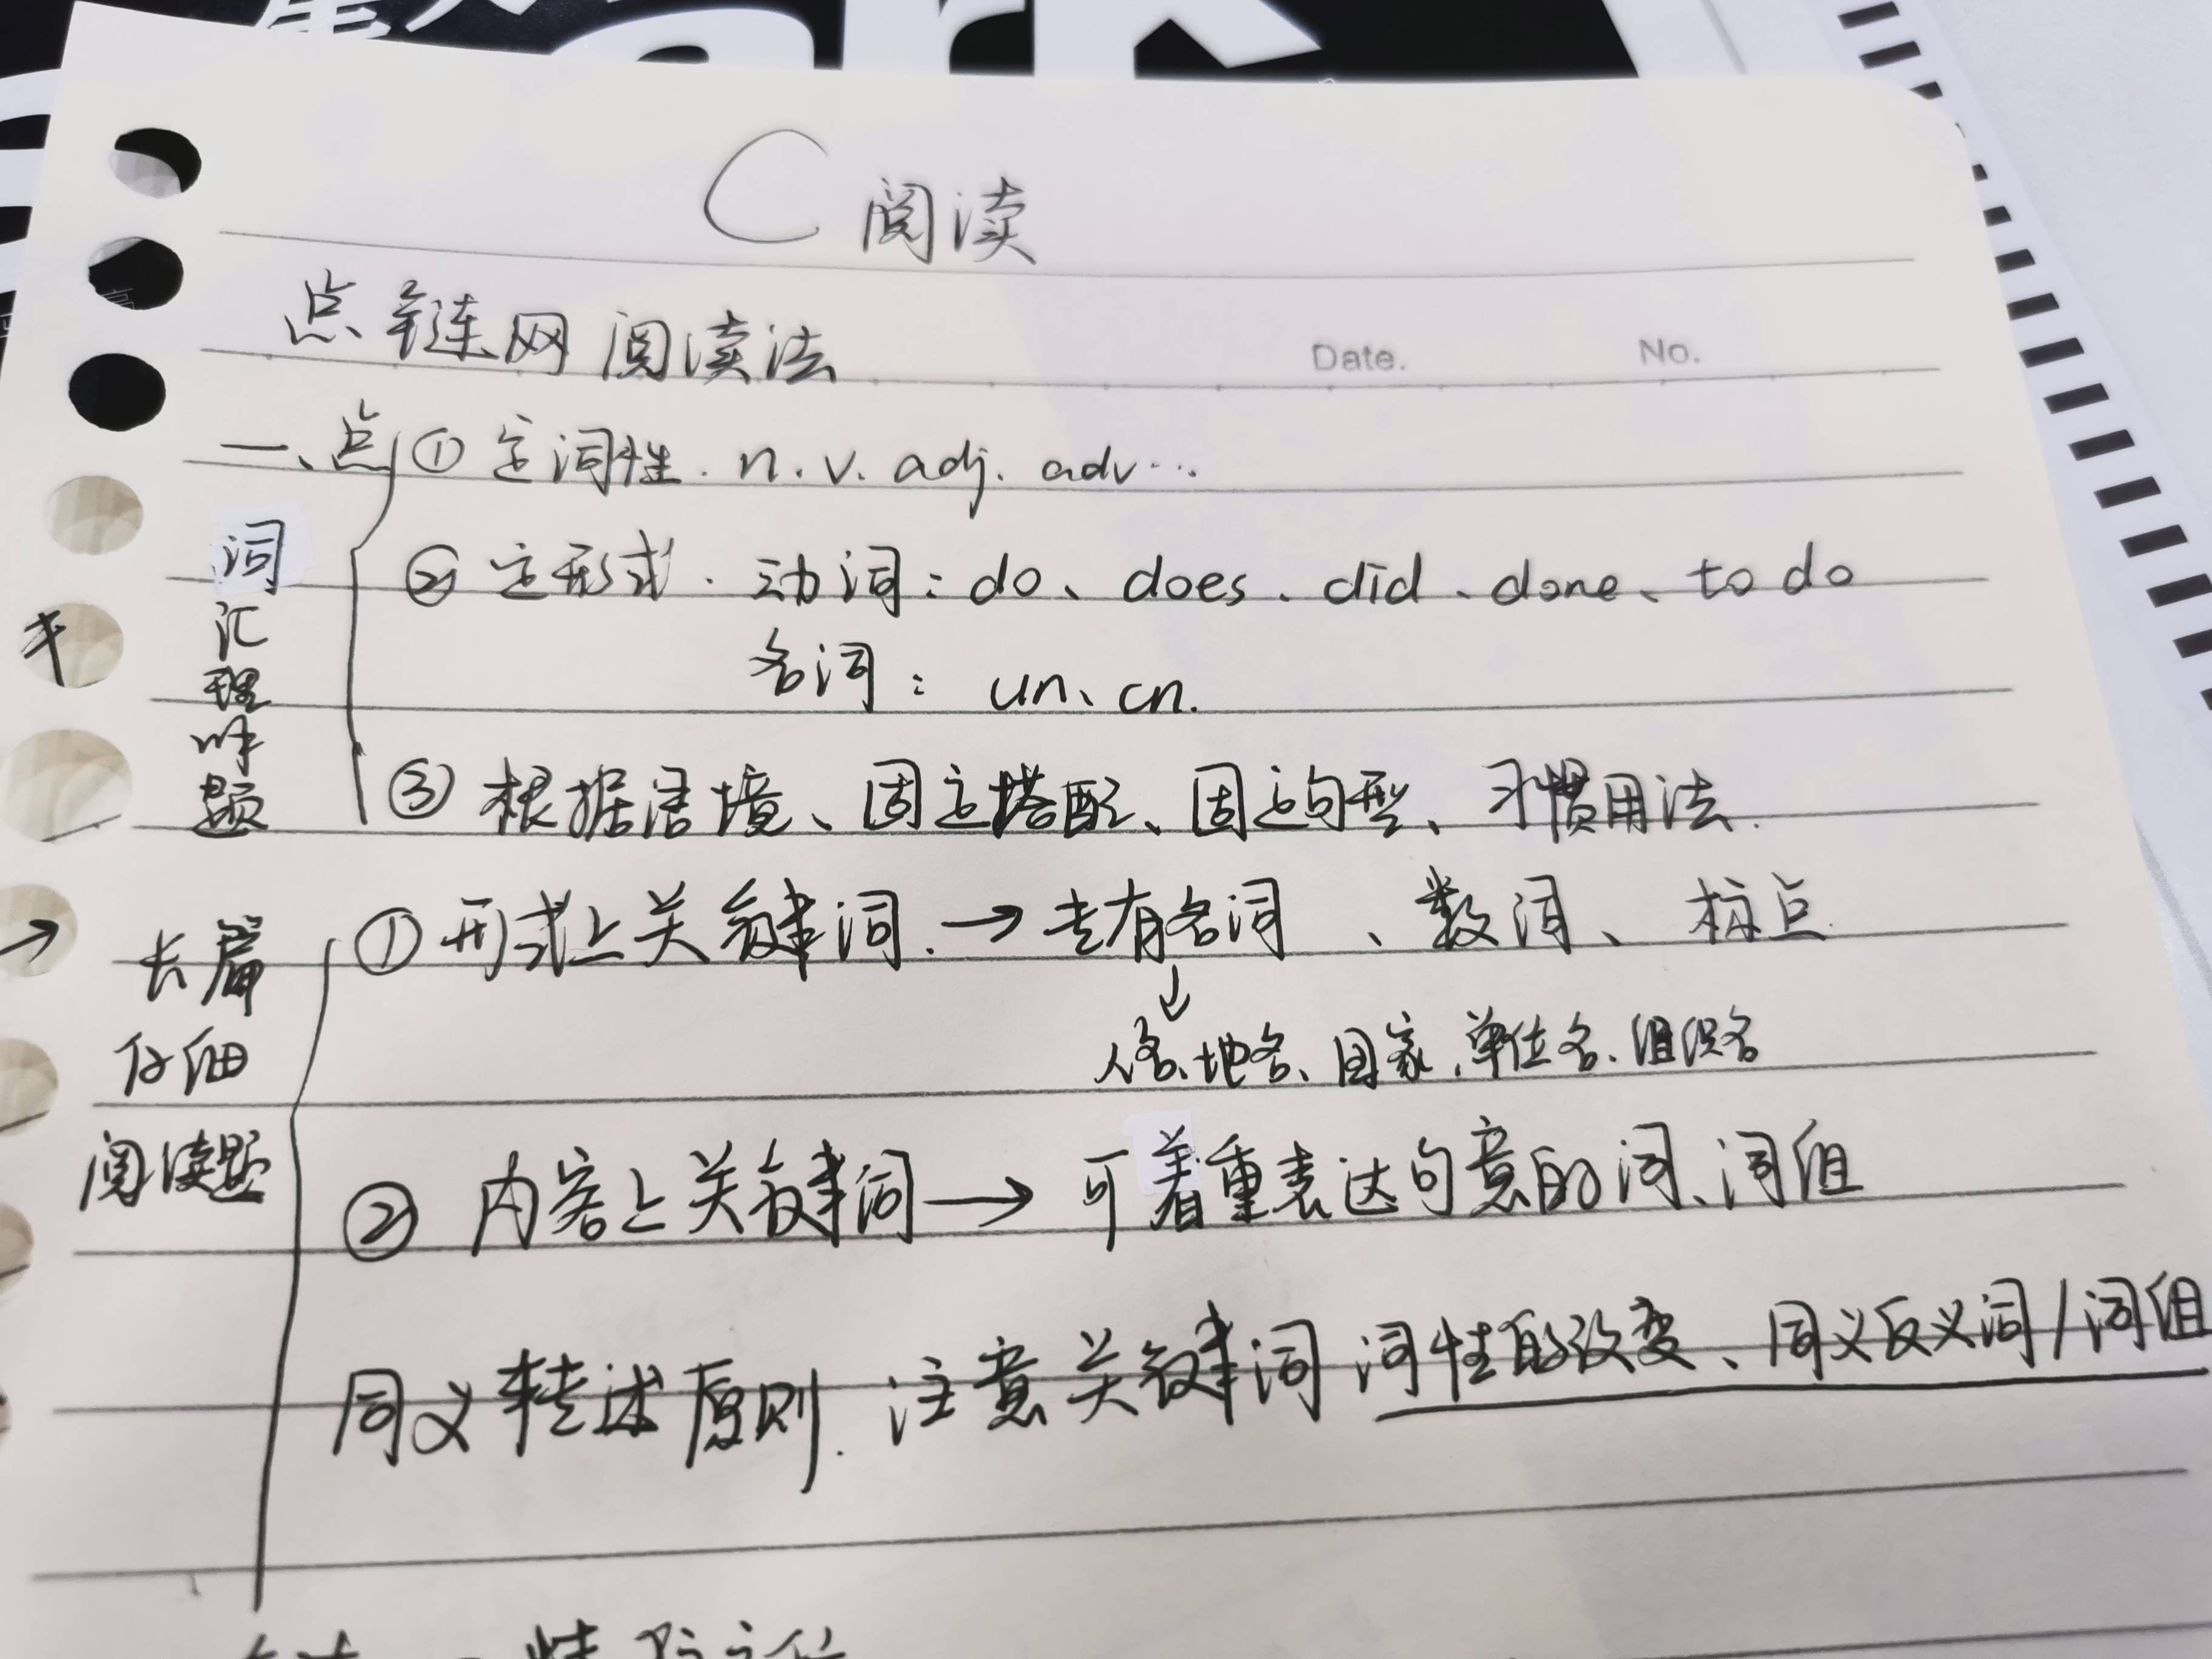 C 阅读
点链网阅读法
Date. No.
一、点 ① 定词性. n. v. adj. adv…
词汇理解题
② 定形式. 动词: do、does、did、done、to do
名词: un、cn.
③ 根据语境、固定搭配、固定句型、习惯用法.
长篇
仔细
阅读题
① 形式上关键词. → 专有名词、数词、标点.
↓
人名、地名、国家、单位名、组织名
② 内容上关键词 → 可着重表达句意的词、词组
同义转述原则. 注意关键词 词性的改变、同义反义词/词组